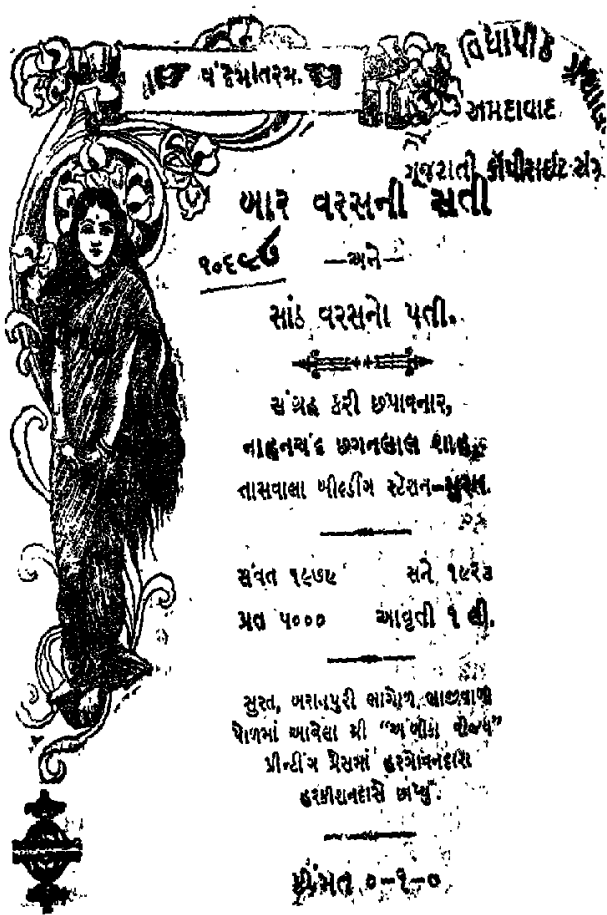 વંદેમાતરમ.
વિદ્યાપીઠ
અમદાવાદ
ગૂજરાતી કૉપીરાઇટ સંગ્રહ
બાર વરસની સતી
૧૦૬૯૭
—અને—
સાંઠ વરસનો પતી.
સંગ્રહ કરી છપાવનાર,
નાહનચંદ છગનલાલ શાહ,
તાસવાલા બીલ્ડીંગ સ્ટેશન–સુરત.
સંવત ૧૯૭૯ સને ૧૯૨૩
પ્રત ૫૦૦૦ આવૃતી ૧ લી.
સુરત, બરાનપુરી ભાગોળ, ભાજીવાળી
પોળમાં આવેલા શ્રી “અંબીકા વીજય”
પ્રીન્ટીંગ પ્રેસમાં હરગોવનદાસ
હરકીશનદાસે છાપ્યું.
કીંમત ૦–૧–૦